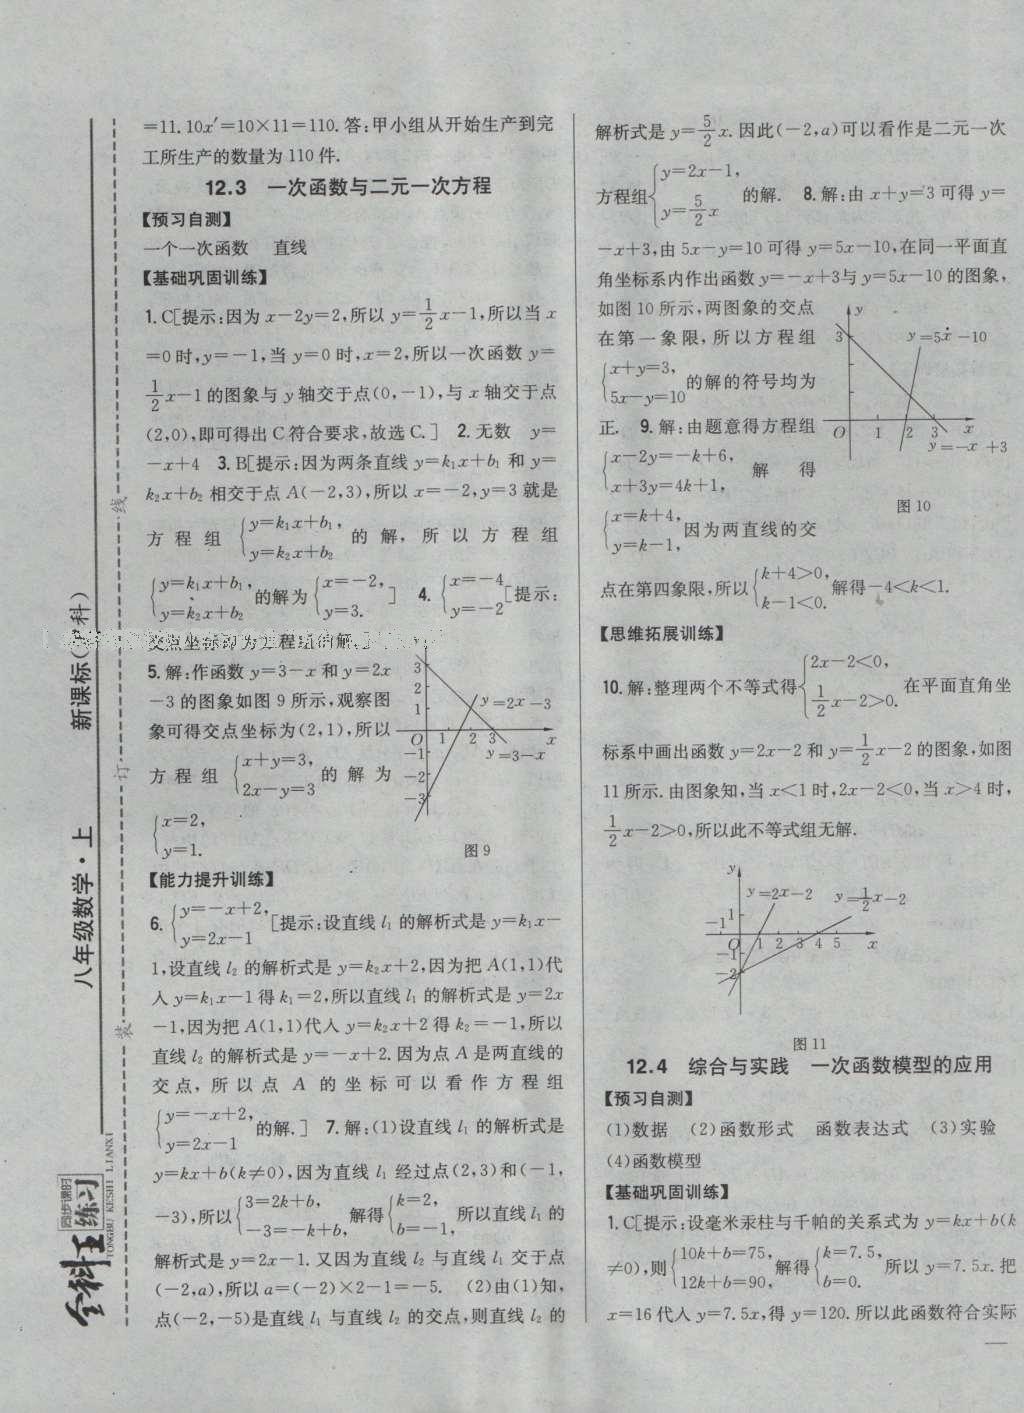 =11. 10x′=10×11=110. 答:甲小组从开始生产到完
工所生产的数量为 110 件.
12.3 一次函数与二元一次方程
【预习自测】
一个一次函数 直线
【基础巩固训练】
1. C[提示:因为 x-2y=2,所以 y=1/2x-1,所以当 x
=0时,y=-1,当 y=0 时,x=2,所以一次函数 y=
1/2x-1的图象与 y 轴交于点(0,-1),与 x 轴交于点
(2,0),即可得出 C 符合要求,故选 C. ] 2. 无数 y=
-x+4 3. B[提示:因为两条直线 y=k₁x+b₁ 和 y=
k₂x+b₂ 相交于点 A(-2,3),所以 x=-2,y=3 就是
方程组 {y=k₁x+b₁, y=k₂x+b₂ 的解,所以方程组
{y=k₁x+b₁, y=k₂x+b₂ 的解为 {x=-2, y=3. ] 4. {x=-4 y=-2 [提示:
交点坐标即为方程组的解.
5. 解:作函数 y=3-x 和 y=2x
-3 的图象如图 9 所示,观察图
象可得交点坐标为(2,1),所以
方程组 {x+y=3, 2x-y=3 的解为
{x=2, y=1.
3
2
1
O 1 2 3 x
-1
-2
-3
y=2x-3
y=3-x
图 9
【能力提升训练】
6. {y=-x+2, y=2x-1 [提示:设直线 l₁ 的解析式是 y=k₁x-
1,设直线 l₂ 的解析式是 y=k₂x+2,因为把 A(1,1)代
入 y=k₁x-1得 k₁=2,所以直线 l₁ 的解析式是 y=2x
-1,因为把 A(1,1)代入 y=k₂x+2 得 k₂=-1,所以
直线 l₂ 的解析式是 y=-x+2. 因为点 A 是两直线的
交点,所以点 A 的坐标可以看作方程组
{y=-x+2, y=2x-1 的解. ] 7. 解:(1)设直线 l₁ 的解析式是
y=kx+b(k≠0),因为直线 l₁ 经过点(2,3)和(-1,
-3),所以 {3=2k+b, -3=-k+b, 解得 {k=2, b=-1, 所以直线 l₁ 的
解析式是 y=2x-1. 又因为直线 l₂ 与直线 l₁ 交于点
(-2,a),所以 a=(-2)×2-1=-5. (2)由(1)知,
点(-2,-5)是直线 l₁ 与直线 l₂ 的交点,则直线 l₂ 的
解析式是 y=5/2x. 因此(-2,a)可以看作是二元一次
方程组 {y=2x-1, y=5/2x 的解. 8. 解:由 x+y=3 可得 y=
-x+3,由 5x-y=10 可得 y=5x-10,在同一平面直
角坐标系内作出函数 y=-x+3与 y=5x-10 的图象,
如图 10 所示,两图象的交点
在第一象限,所以方程组
{x+y=3, 5x-y=10 的解的符号均为
正. 9. 解:由题意得方程组
{x-2y=-k+6, x+3y=4k+1, 解得
{x=k+4, y=k-1, 因为两直线的交
点在第四象限,所以 {k+4>0, k-1<0. 解得-4<k<1.
y
3
y=5x-10
O 1 2 3 x
y=-x+3
图 10
【思维拓展训练】
10. 解:整理两个不等式得 {2x-2<0, 1/2x-2>0. 在平面直角坐
标系中画出函数 y=2x-2 和 y=1/2x-2 的图象,如图
11 所示. 由图象知,当 x<1 时,2x-2<0,当 x>4 时,
1/2x-2>0,所以此不等式组无解.
y
y=2x-2 y=1/2x-2
1
-1 O 1 2 3 4 5 x
-1
-2
图 11
12.4 综合与实践 一次函数模型的应用
【预习自测】
(1)数据 (2)函数形式 函数表达式 (3)实验
(4)函数模型
【基础巩固训练】
1. C[提示:设毫米汞柱与千帕的关系式为 y=kx+b(k
≠0),则 {10k+b=75, 12k+b=90, 解得 {k=7.5, b=0. 所以 y=7.5x. 把
x=16 代入 y=7.5x,得 y=120. 所以此函数符合实际
八年级数学·上 新课标(沪科)
装 订 线
全科王
同步课时
练习
TONGBU KESHI LIANXI